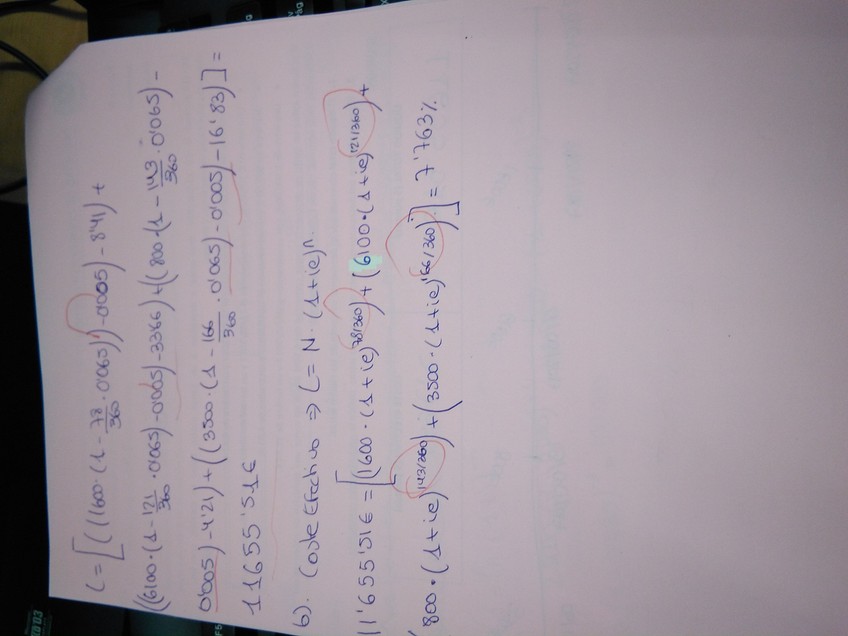 C = [(((1600·(1 - 78/360 · 0'065)) - 0'005) - 8'41) +
((6100·(1 - 121/360 · 0'065) - 0'005) - 33'66) + ((800·(1 - 143/360 · 0'065) -
0'005) - 4'21) + ((3500·(1 - 166/360 · 0'065) - 0'005) - 16'83)] =
11655'51€
b). Coste Efectivo ⇒ C = N · (1+ie)ⁿ.
11'655'51€ = [(1600·(1+ie)^78/360) + (6100·(1+ie)^121/360) +
800·(1+ie)^143/360) + (3500·(1+ie)^166/360)] = 7'763%